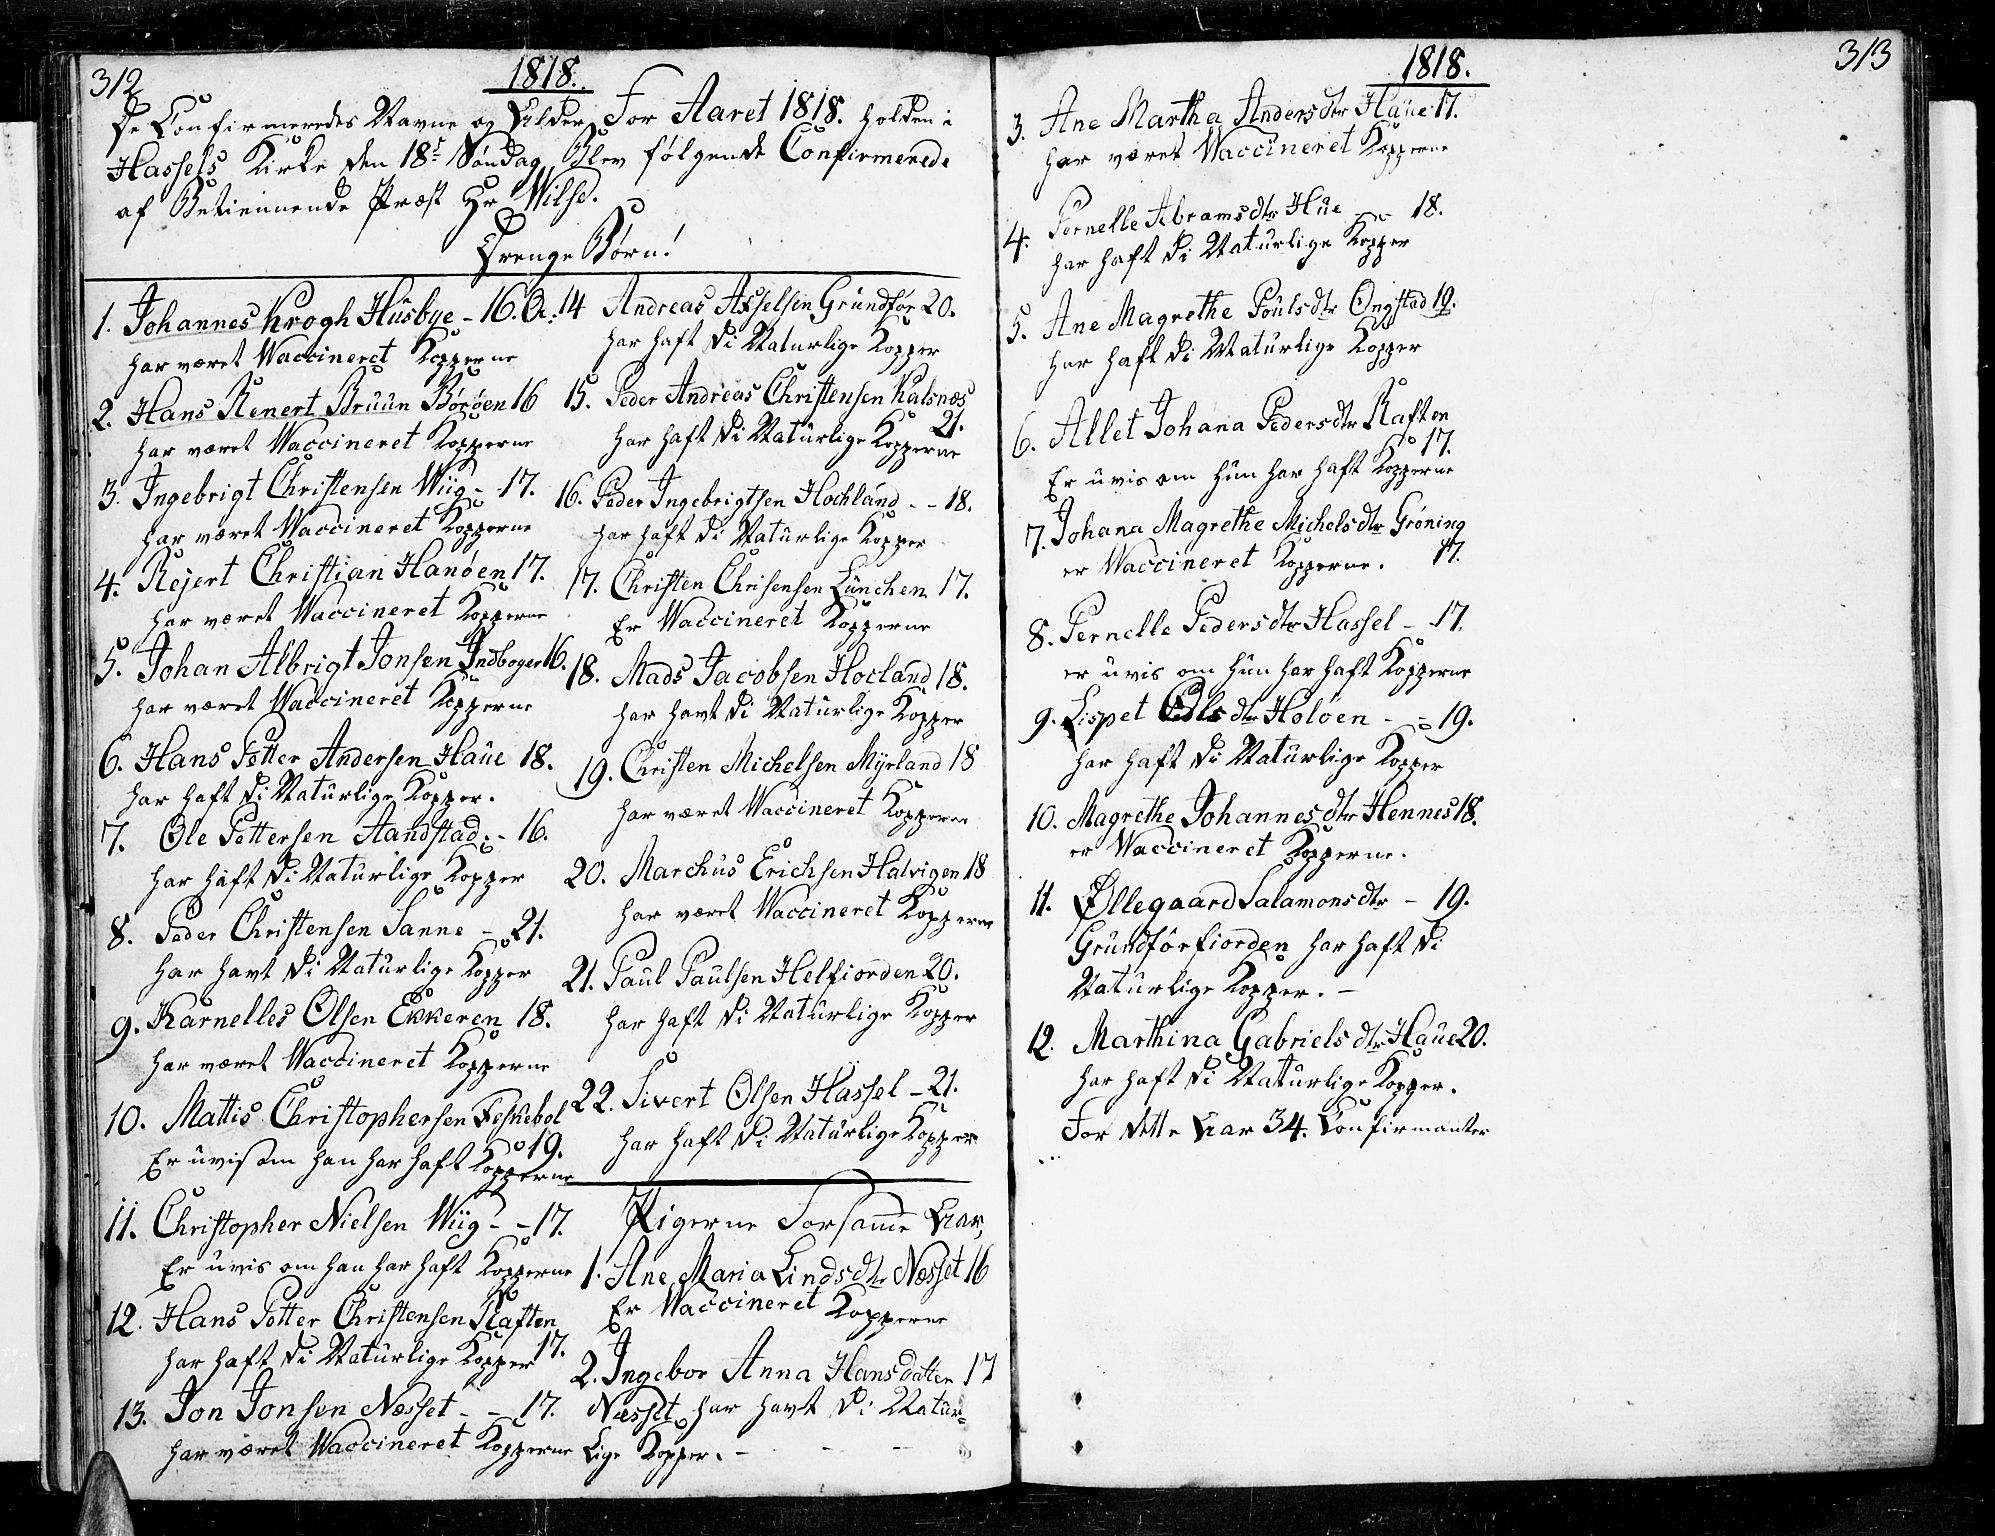 312
1818.
De Confirmeredes Navne og Alder For Aaret 1818. holden i
Hassels Kirke den 18de Søndag, Blev følgende Confirmerede
af Betiennende Præst Hr Wilse.
Drenge Børn!
1. Johannes Krogh Husbye - 16. Ar.
har været Waccineret Kopperne
2. Hans Renert Bruun Børøen 16
har været Waccineret Kopperne
3. Ingebrigt Christensen Wiig - 17.
har været Waccineret Kopperne
4. Rejert Christian Hanøen 17.
har været Waccineret Kopperne
5. Johan Albrigt Jonsen Indboger 16.
har været Waccineret Kopperne
6. Hans Petter Andersen Haue 18.
har haft di Naturlige Kopper.
7. Ole Pettersen Aandstad. - 16.
har haft di Naturlige Kopper
8. Peder Christensen Sanne - 21.
har havt di Naturlige Kopper
9. Karnelles Olsen Ekkeren 18.
har været Waccineret Kopperne
10. Mattis Christophersen Feskebøl
19.
Er uvis om han har haft Kopperne
11. Christopher Nielsen Wiig - - 17.
Er uvis om han har haft Kopperne
12. Hans Petter Christensen Raften
17.
har haft di Naturlige Kopper
13. Jon Jonsen Næsset - - 17.
har været Waccineret Kopperne
14 Andreas Asselsen Grundfør 20.
har haft di Naturlige Kopper
15. Peder Andreas Christensen Kalsnæs
21.
har haft di Naturlige Kopperne
16. Peder Ingebrigtsen Hochland - - 18.
har haft di Naturlige Kopper
17. Christen Chrisensen Lünchen 17.
Er Waccineret Kopperne
18. Mads Jacobsen Hocland 18.
har havt di Naturlige Kopper
19. Christen Michelsen Myrland 18
har været Waccineret Kopperne
20. Marchus Erichsen Halvigen 18
har været Waccineret Kopperne
21. Paul Paulsen Helfiorden 20.
har haft di Naturlige Kopper
22. Sivert Olsen Hassel - 21.
har haft di Naturlige Kopper
Pigerne For samme Aar,
1. Ane Maria Lindsdtr Næsset 16
Er Waccineret Kopperne
2. Ingebor Anna Hansdatter 17
Næsset, har havt di Natur=
Lige Kopper. -
1818.
313
3. Ane Martha Andersdtr Haue 17.
har været Waccineret Kopperne
4. Pernelle Abramsdtr Hue - 18.
har haft di Naturlige Kopper
5. Ane Magrethe Poulsdtr Ongstad 19.
har haft di Naturlige Kopper
6. Allet Johana Pedersdtr Raften
17.
Er uvis om hun har haft Kopperne
7. Johana Magrethe Michelsdtr Grøning
er Waccineret Kopperne. 17.
8. Pernelle Pedersdtr Hassel - 17.
er uvis om hun har haft Kopperne
9. Lispet dtr Holøen - - 19.
har haft di Naturlige Kopper
10. Magrethe Johannesdtr Hennes 18.
er Waccineret Kopperne.
11. Øllegaard Salamonsdtr - 19.
Grundförfiorden har haft di
Naturlige Kopper. -
12. Marthina Gabrielsdtr Haue 20.
har haft di Naturlige Kopper.
For dette Aar 34. Confirmanter